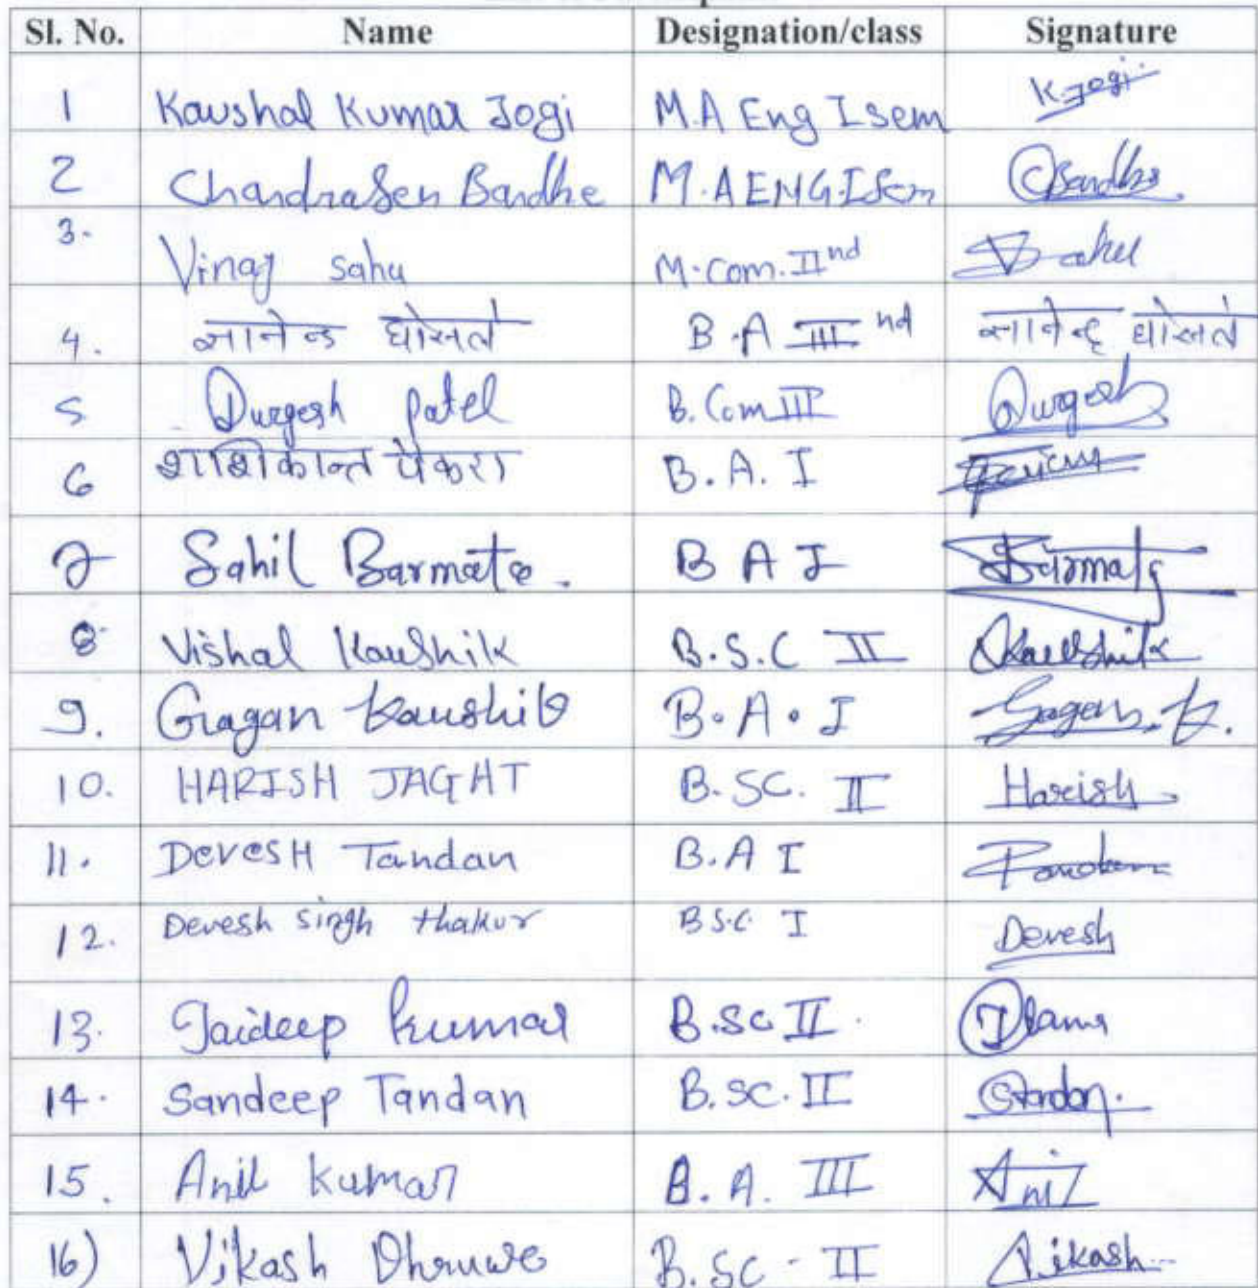 Sl. No. Name Designation/class Signature
1 Kaushal Kumar Jogi M.A Eng I sem K Jogi
2 Chandrasen Bandhe M.A ENG I Sem Bandhe
3. Vinay sahu M.Com. IInd Sahu
4. घोसले B.A III nd घोसले
5 Durgesh patel B.Com III Durgesh
6 शशिकान्त पैकरा B.A. I
7 Sahil Barmate. B A I Barmate
8 Vishal Kaushik B.S.C II Kaushik
9. Gagan Kaushik B.A.I Gagan.K.
10. HARISH JAGHT B.SC. II Harish
11. DevesH Tandan B.A I Tandan
12. Devesh singh thakur B S.C. I Devesh
13. Jaideep Kumar B.SC II.
14. Sandeep Tandan B.SC. II
15. Anil Kumar B.A. III Anil
16) Vikash Dhruwe B.SC - II Vikash